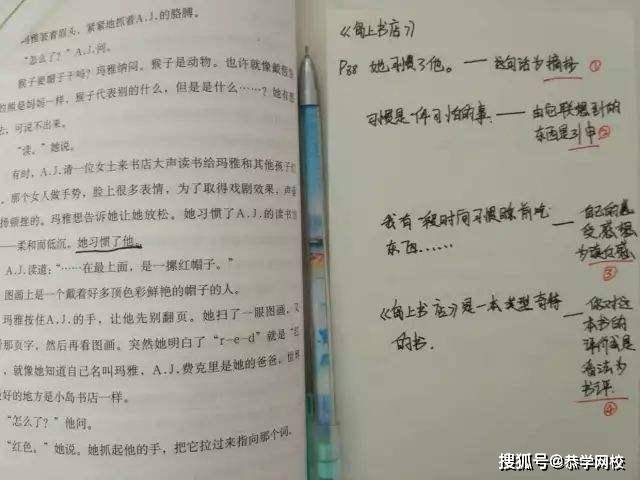 玛雅皱着眉头,紧紧地抓着A.J.的胳膊。
“怎么了?”A.J.问。
猴子要帽子干吗?玛雅纳闷。猴子是动物。也许就像戴
熊是妈妈一样,猴子代表别的什么,但是是什么……?她有
,可说不出来。
“读。”她说。
有时,A.J.请一位女士来书店大声读书给玛雅和其他孩子
。那个女人做手势,脸上很多表情,为了取得戏剧效果,声
扬顿挫的。玛雅想告诉她让她放松。她习惯了A.J.的读书
——柔和而低沉。她习惯了他。
A.J.读道:“……在最上面,是一摞红帽子。”
图画上是一个戴着好多顶色彩鲜艳的帽子的人。
玛雅按住A.J.的手,让他先别翻页。她扫了一眼图画,又
那页字,然后再看图画。突然她明白了“r-e-d”就是“红
,就像她知道自己名叫玛雅,A.J.费克里是她的爸爸,世界
好的地方是小岛书店一样。
“怎么了?”他问。
“红色。”她说。她抓起他的手,把它拉过来指向那个词。
《岛上书店》
P88 她习惯了他。——这句话为摘抄 ①
习惯是一件可怕的事.——由它联想到的
东西是引申②
我有一段时间习惯睡前吃
东西……
——自己的感
受感想
为读后感
③
《岛上书店》是一本类型奇特
的书.
——你对这
本书的
评价或是
看法为
书评.
④
搜狐号@恭学网校